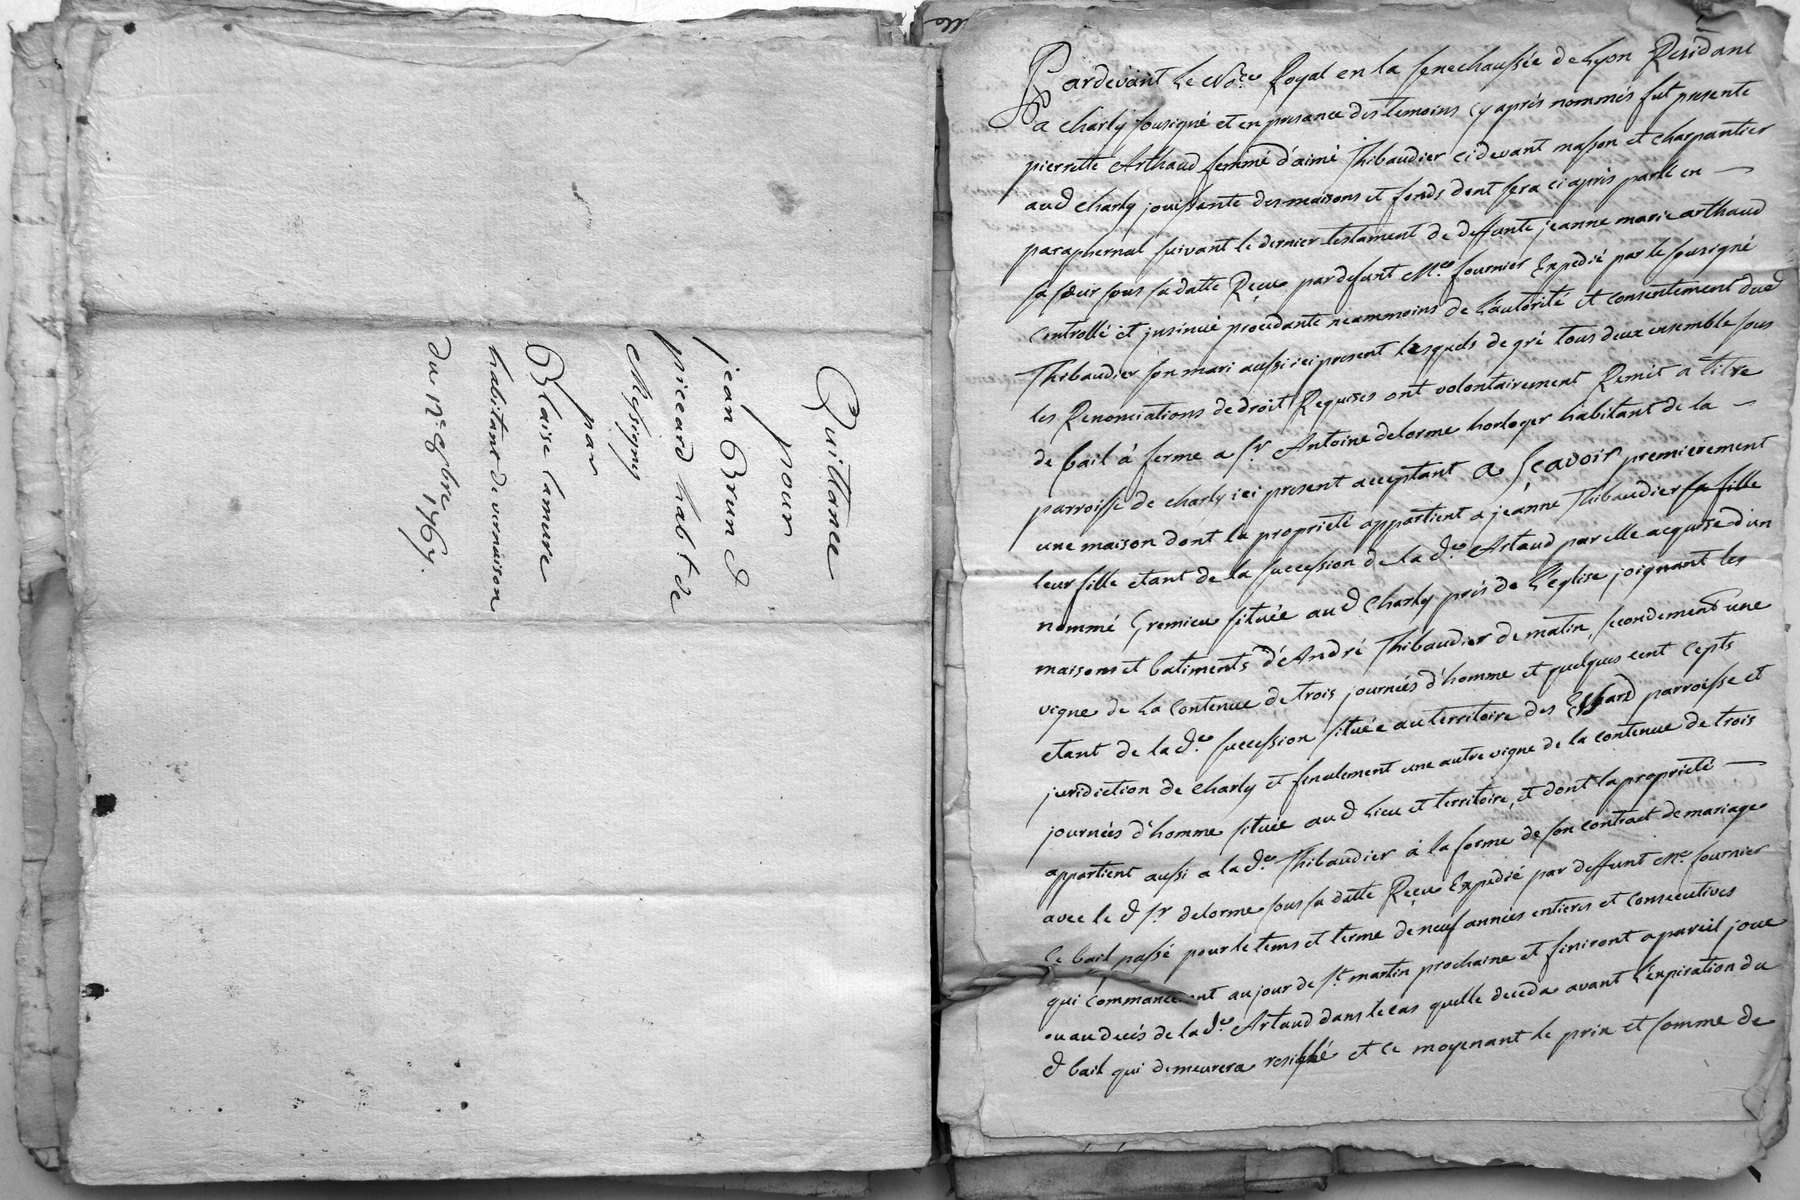 Quittance
pour
jean Brun d
piccard hab.t de
Messigny
par
Blaise lamure
habitant de vernaison
du 11.e 7bre 1767.
Pardevant Le No.re Royal en la senechaussée de Lyon Residant
a charly sousigné et en presance des temoins cy aprés nommés fut presente
pierrette Arthaud femme d'aimé Thibaudier cidevant masson et charpantier
aud charly jouissante des maisons et fonds dont sera ci aprés parlé en
paraphernal suivant le dernier testament de deffunte jeanne marie arthaud
sa sœur sous sa datte Reçue par defunt M.e fournier Expedié par le sousigné
controllé et jnsinué procedante neammoins de L'autorité et consentement dud
Thibaudier son mari aussi ici present lesquels de gré tous deux ensemble sous
les Renonciations de droit Requises ont volontairement Remit a titre
de bail à ferme a S.r Antoine delorme horloger habitant de la
parroisse de charly ici present acceptant a Sçavoir premierement
une maison dont la proprieté appartient a jeanne Thibaudier sa fille
leur fille etant de la succession de la d.e Artaud par elle acquise d'un
nommé Gremieu située aud Charly près de L'eglise joignant les
maisons et batiments d'André Thibaudier de matin, secondement une
vigne de la contenue de trois journées d'homme et quelques cent cepts
etant de la d.e succession située au territoire des Essard parroisse et
juridiction de charly et finalement une autre vigne de la contenue de trois
journées d'homme située aud Lieu et territoire, et dont la proprieté
appartient aussi a la d.e Thibaudier à la forme de son contract de mariage
avec le d S.r delorme sous sa datte Reçue Expedié par deffunt M.e fournier
Ce bail passé pour le tems et terme de neuf années entieres et consecutives
qui commancent au jour de S.t martin prochaine et finiront a pareil jour
ou au decès de la d.e Artaud dans le cas quelle deceda avant L'expiration du
d bail qui demeurera resilié et ce moyenant le prix et somme de